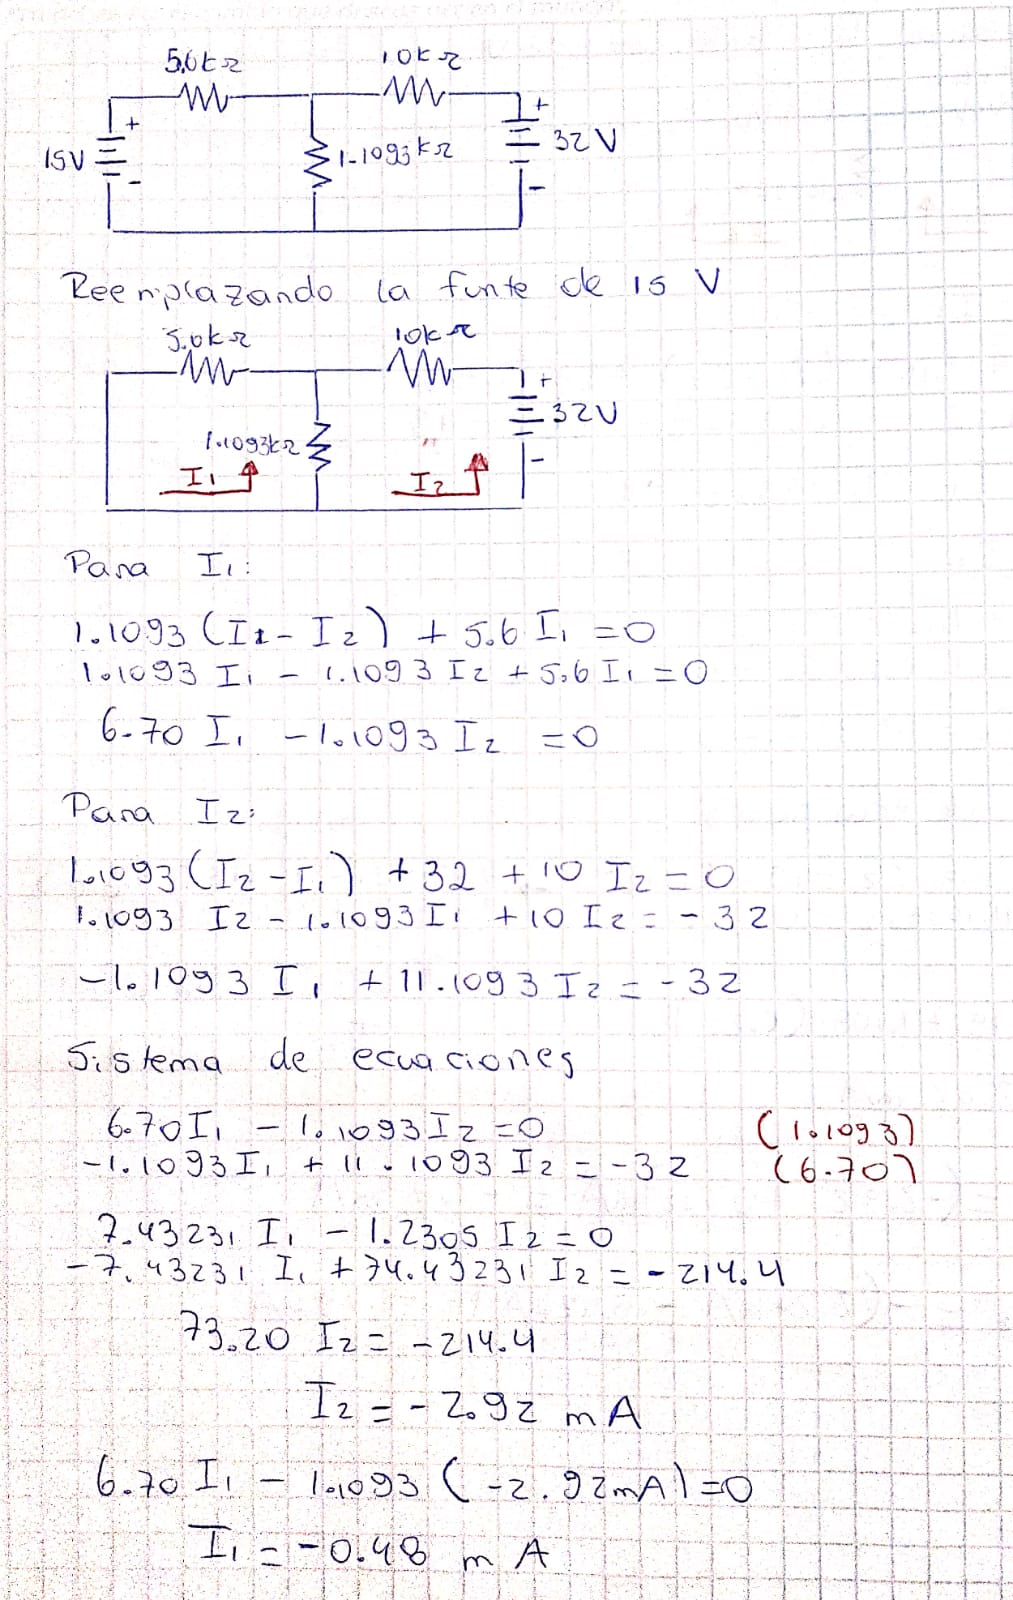 5,6kΩ 10kΩ
15V + - 1.1093kΩ + - 32V
Reemplazando la funte de 15 V
5.6kΩ 10kΩ
1.1093kΩ + - 32V
I1 I2
Para I1:
1.1093 (I1 - I2) + 5.6 I1 = 0
1.1093 I1 - 1.1093 I2 + 5.6 I1 = 0
6.70 I1 - 1.1093 I2 = 0
Para I2:
1.1093 (I2 - I1) + 32 + 10 I2 = 0
1.1093 I2 - 1.1093 I1 + 10 I2 = -32
-1.1093 I1 + 11.1093 I2 = -32
Sistema de ecuaciones
6.70 I1 - 1.1093 I2 = 0 (1.1093)
-1.1093 I1 + 11.1093 I2 = -32 (6.70)
7.43231 I1 - 1.2305 I2 = 0
-7.43231 I1 + 74.43231 I2 = -214.4
73.20 I2 = -214.4
I2 = -2.92 mA
6.70 I1 - 1.1093 (-2.92mA) = 0
I1 = -0.48 mA